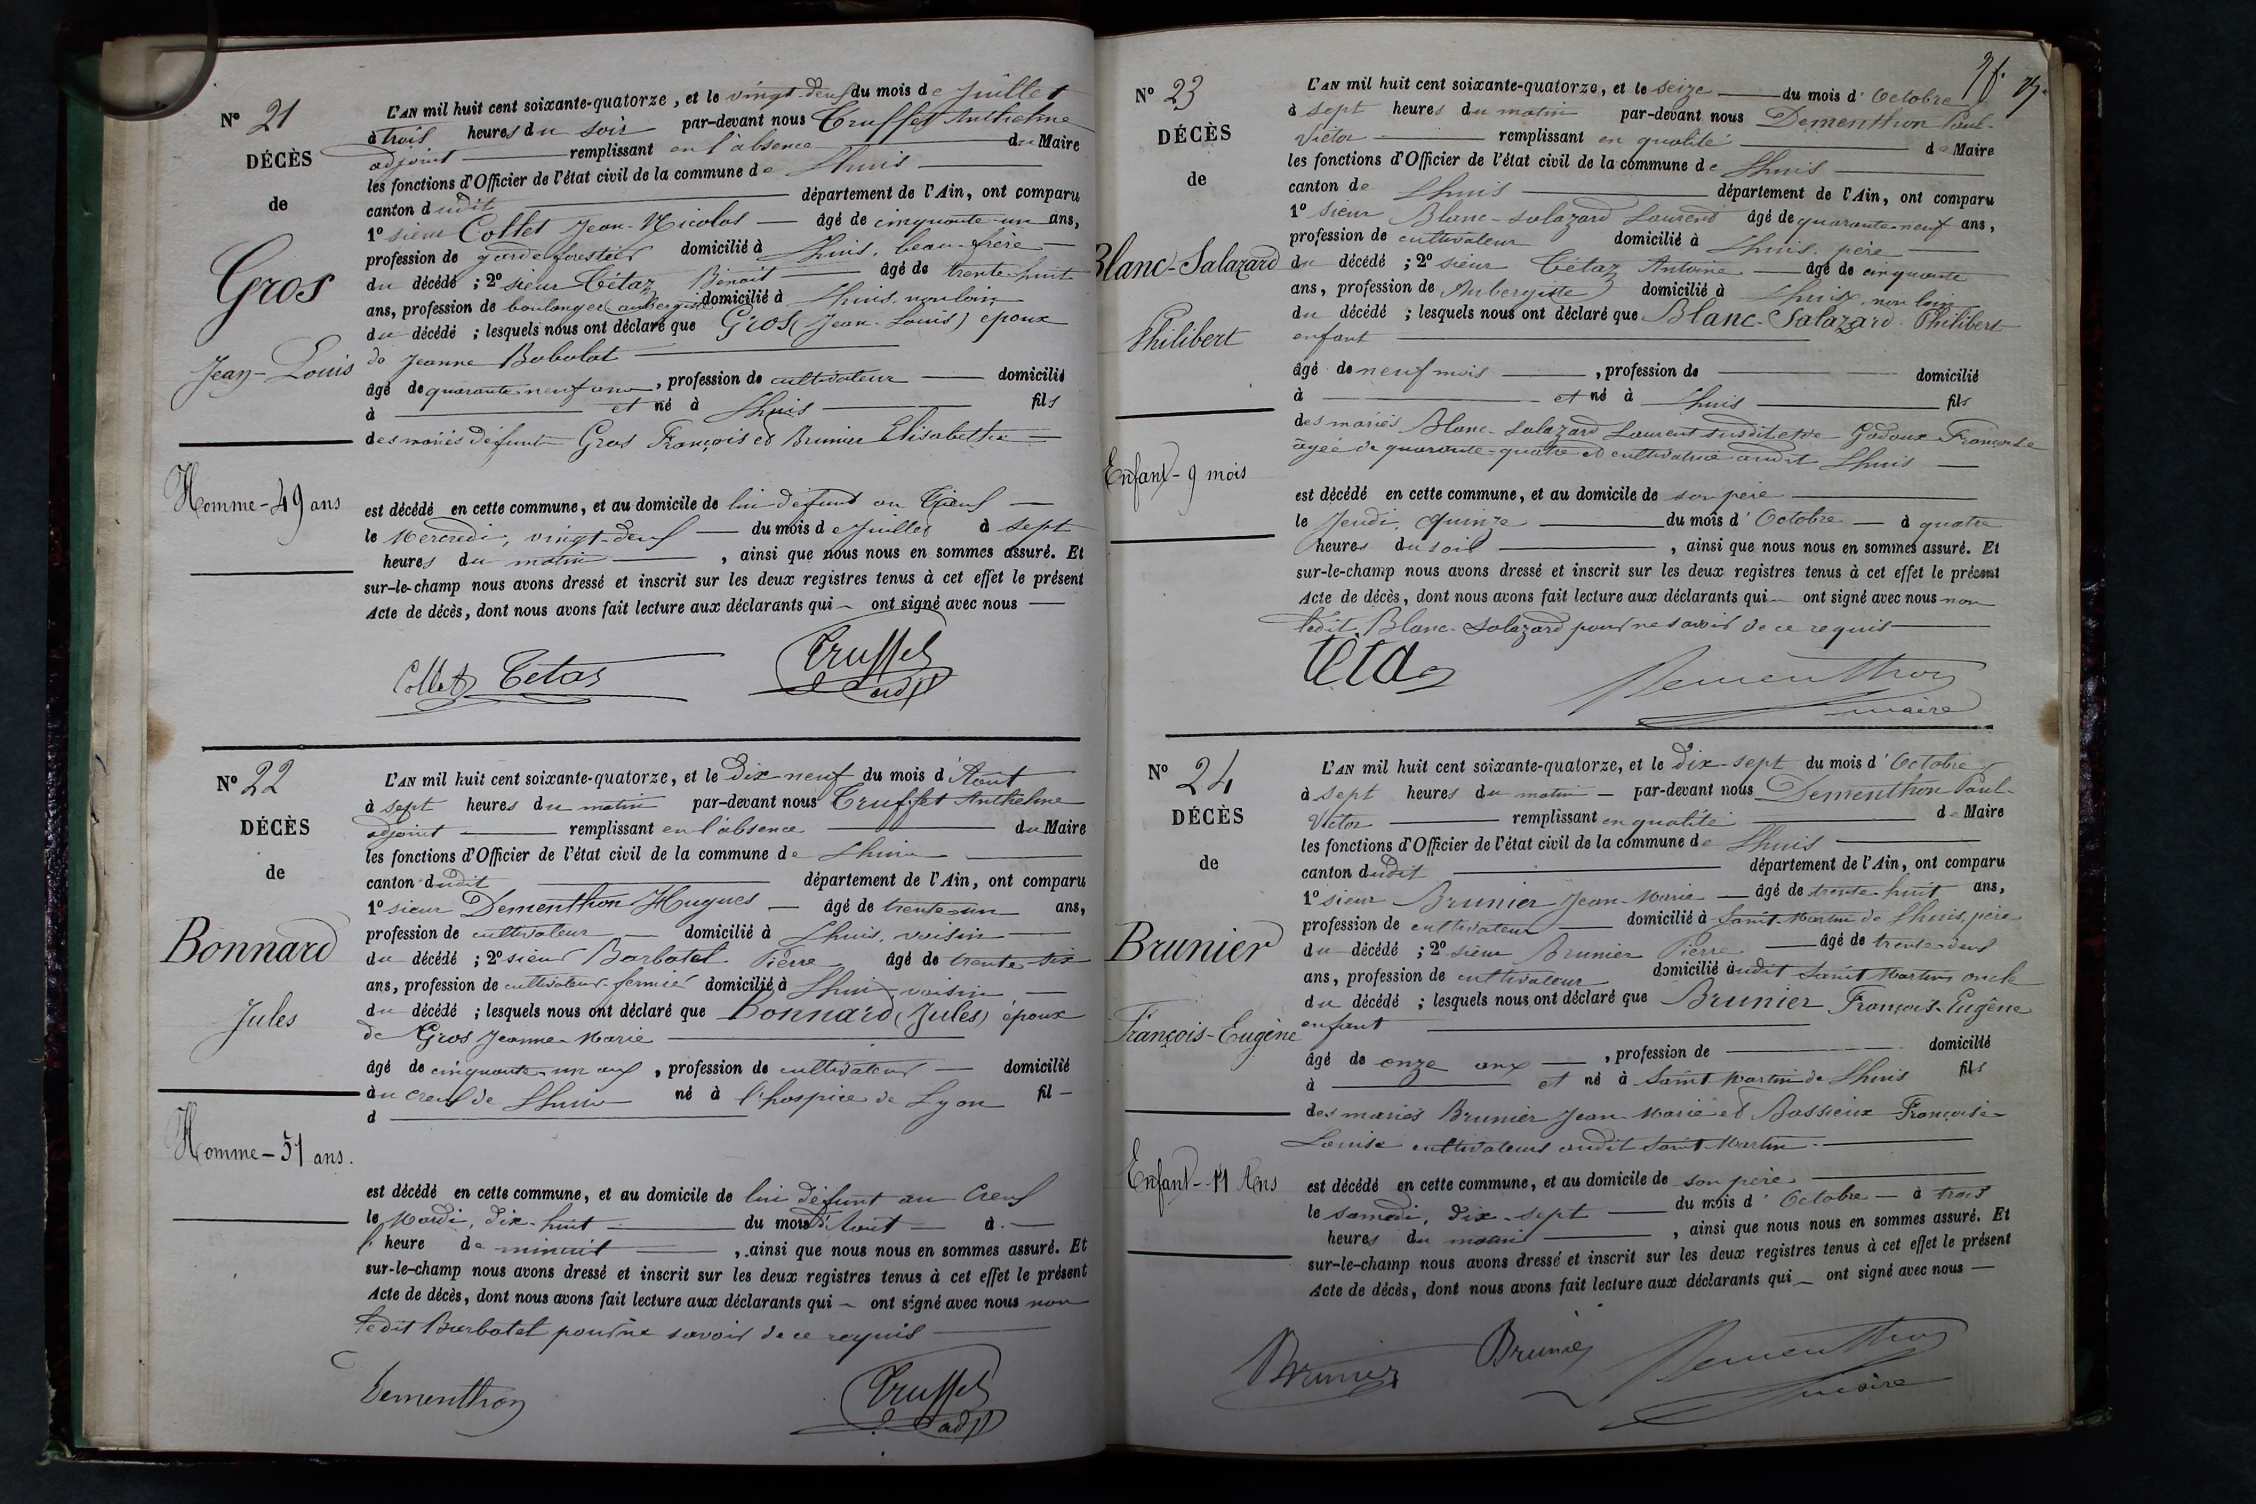 N° 21
DÉCÈS
de
Gros
Jean-Louis
Homme - 49 ans
L'AN mil huit cent soixante-quatorze, et le vingt-deux du mois de Juillet
à trois heures du soir par-devant nous Truffet Anthelme
adjoint remplissant en l'absence du Maire
les fonctions d'Officier de l'état civil de la commune de Lhuis
canton dudit département de l'Ain, ont comparu
1° sieur Collet Jean-Nicolas âgé de cinquante-un ans,
profession de garde forestier domicilié à Lhuis, beau-frère
du décédé ; 2° sieur Tétaz Benoit âgé de trente huit
ans, profession de boulanger (aubergiste) domicilié à Lhuis, non loin
du décédé ; lesquels nous ont déclaré que Gros (Jean-Louis) époux
de Jeanne Bobolat
âgé de quarante neuf ans, profession de cultivateur domicilié
à et né à Lhuis fils
des mariés défunts Gros François et Brunier Elisabethe
est décédé en cette commune, et au domicile de lui défunt au Creux
le Mercredi, vingt-deux du mois de Juillet à sept
heures du matin, ainsi que nous nous en sommes assuré. Et
sur-le-champ nous avons dressé et inscrit sur les deux registres tenus à cet effet le présent
Acte de décès, dont nous avons fait lecture aux déclarants qui ont signé avec nous
Collet Tétaz Truffet
adjt
N° 22
DÉCÈS
de
Bonnard
Jules
Homme - 51 ans.
L'AN mil huit cent soixante-quatorze, et le Dix neuf du mois d'Aout
à sept heures du matin par-devant nous Truffet Anthelme
adjoint remplissant en l'absence du Maire
les fonctions d'Officier de l'état civil de la commune de Lhuis
canton dudit département de l'Ain, ont comparu
1° sieur Dementhon Hugues âgé de trente-un ans,
profession de cultivateur domicilié à Lhuis, voisin
du décédé ; 2° sieur Barbatel Pierre âgé de trente six
ans, profession de cultivateur-fermier domicilié à Lhuis voisin
du décédé ; lesquels nous ont déclaré que Bonnard (Jules) époux
de Gros Jeanne-Marie
âgé de cinquante-un ans, profession de cultivateur domicilié
au Creux de Lhuis né à l'hospice de Lyon fil
d
est décédé en cette commune, et au domicile de lui défunt au Creux
le Mardi, dix-huit du mois d'Aout à
l'heure de minuit, ainsi que nous nous en sommes assuré. Et
sur-le-champ nous avons dressé et inscrit sur les deux registres tenus à cet effet le présent
Acte de décès, dont nous avons fait lecture aux déclarants qui ont signé avec nous non
ledit Barbatel pour ne savoir de ce requis
Dementhon Truffet
adjt
N° 23
DÉCÈS
de
Blanc-Salazard
Philibert
Enfant - 9 mois
L'AN mil huit cent soixante-quatorze, et le seize du mois d'Octobre
à sept heures du matin par-devant nous Dementhon Paul-
Victor remplissant en qualité de Maire
les fonctions d'Officier de l'état civil de la commune de Lhuis
canton de Lhuis département de l'Ain, ont comparu
1° sieur Blanc-Salazard Laurent âgé de quarante-neuf ans,
profession de cultivateur domicilié à Lhuis, père
du décédé ; 2° sieur Tétaz Antoine âgé de cinquante
ans, profession de Aubergiste domicilié à Lhuis, non loin
du décédé ; lesquels nous ont déclaré que Blanc-Salazard Philibert
enfant
âgé de neuf mois, profession de domicilié
à et né à Lhuis fils
des mariés Blanc-Salazard Laurent susdit et de Godoux Françoise
agée de quarante-quatre et cultivatrice audit Lhuis
est décédé en cette commune, et au domicile de son père
le Jeudi, quinze du mois d'Octobre à quatre
heures du soir, ainsi que nous nous en sommes assuré. Et
sur-le-champ nous avons dressé et inscrit sur les deux registres tenus à cet effet le présent
Acte de décès, dont nous avons fait lecture aux déclarants qui ont signé avec nous non
ledit Blanc-Salazard pour ne savoir de ce requis
Tétaz Dementhon
maire
N° 24
DÉCÈS
de
Brunier
François-Eugène
Enfant - 11 Ans
L'AN mil huit cent soixante-quatorze, et le Dix-sept du mois d'Octobre
à sept heures du matin par-devant nous Dementhon Paul-
Victor remplissant en qualité de Maire
les fonctions d'Officier de l'état civil de la commune de Lhuis
canton dudit département de l'Ain, ont comparu
1° sieur Brunier Jean-Marie âgé de trente-huit ans,
profession de cultivateur domicilié à Saint-Martin de Lhuis, père
du décédé ; 2° sieur Brunier Pierre âgé de trente-deux
ans, profession de cultivateur domicilié audit Saint Martin, oncle
du décédé ; lesquels nous ont déclaré que Brunier François-Eugène
enfant
âgé de onze ans, profession de domicilié
à et né à Saint Martin de Lhuis fils
des mariés Brunier Jean-Marie et Bassieux Françoise-
Louise cultivateurs audit Saint-Martin
est décédé en cette commune, et au domicile de son père
le samedi, dix-sept du mois d'Octobre à trois
heures du matin, ainsi que nous nous en sommes assuré. Et
sur-le-champ nous avons dressé et inscrit sur les deux registres tenus à cet effet le présent
Acte de décès, dont nous avons fait lecture aux déclarants qui ont signé avec nous
Brunier Brunier Dementhon
maire